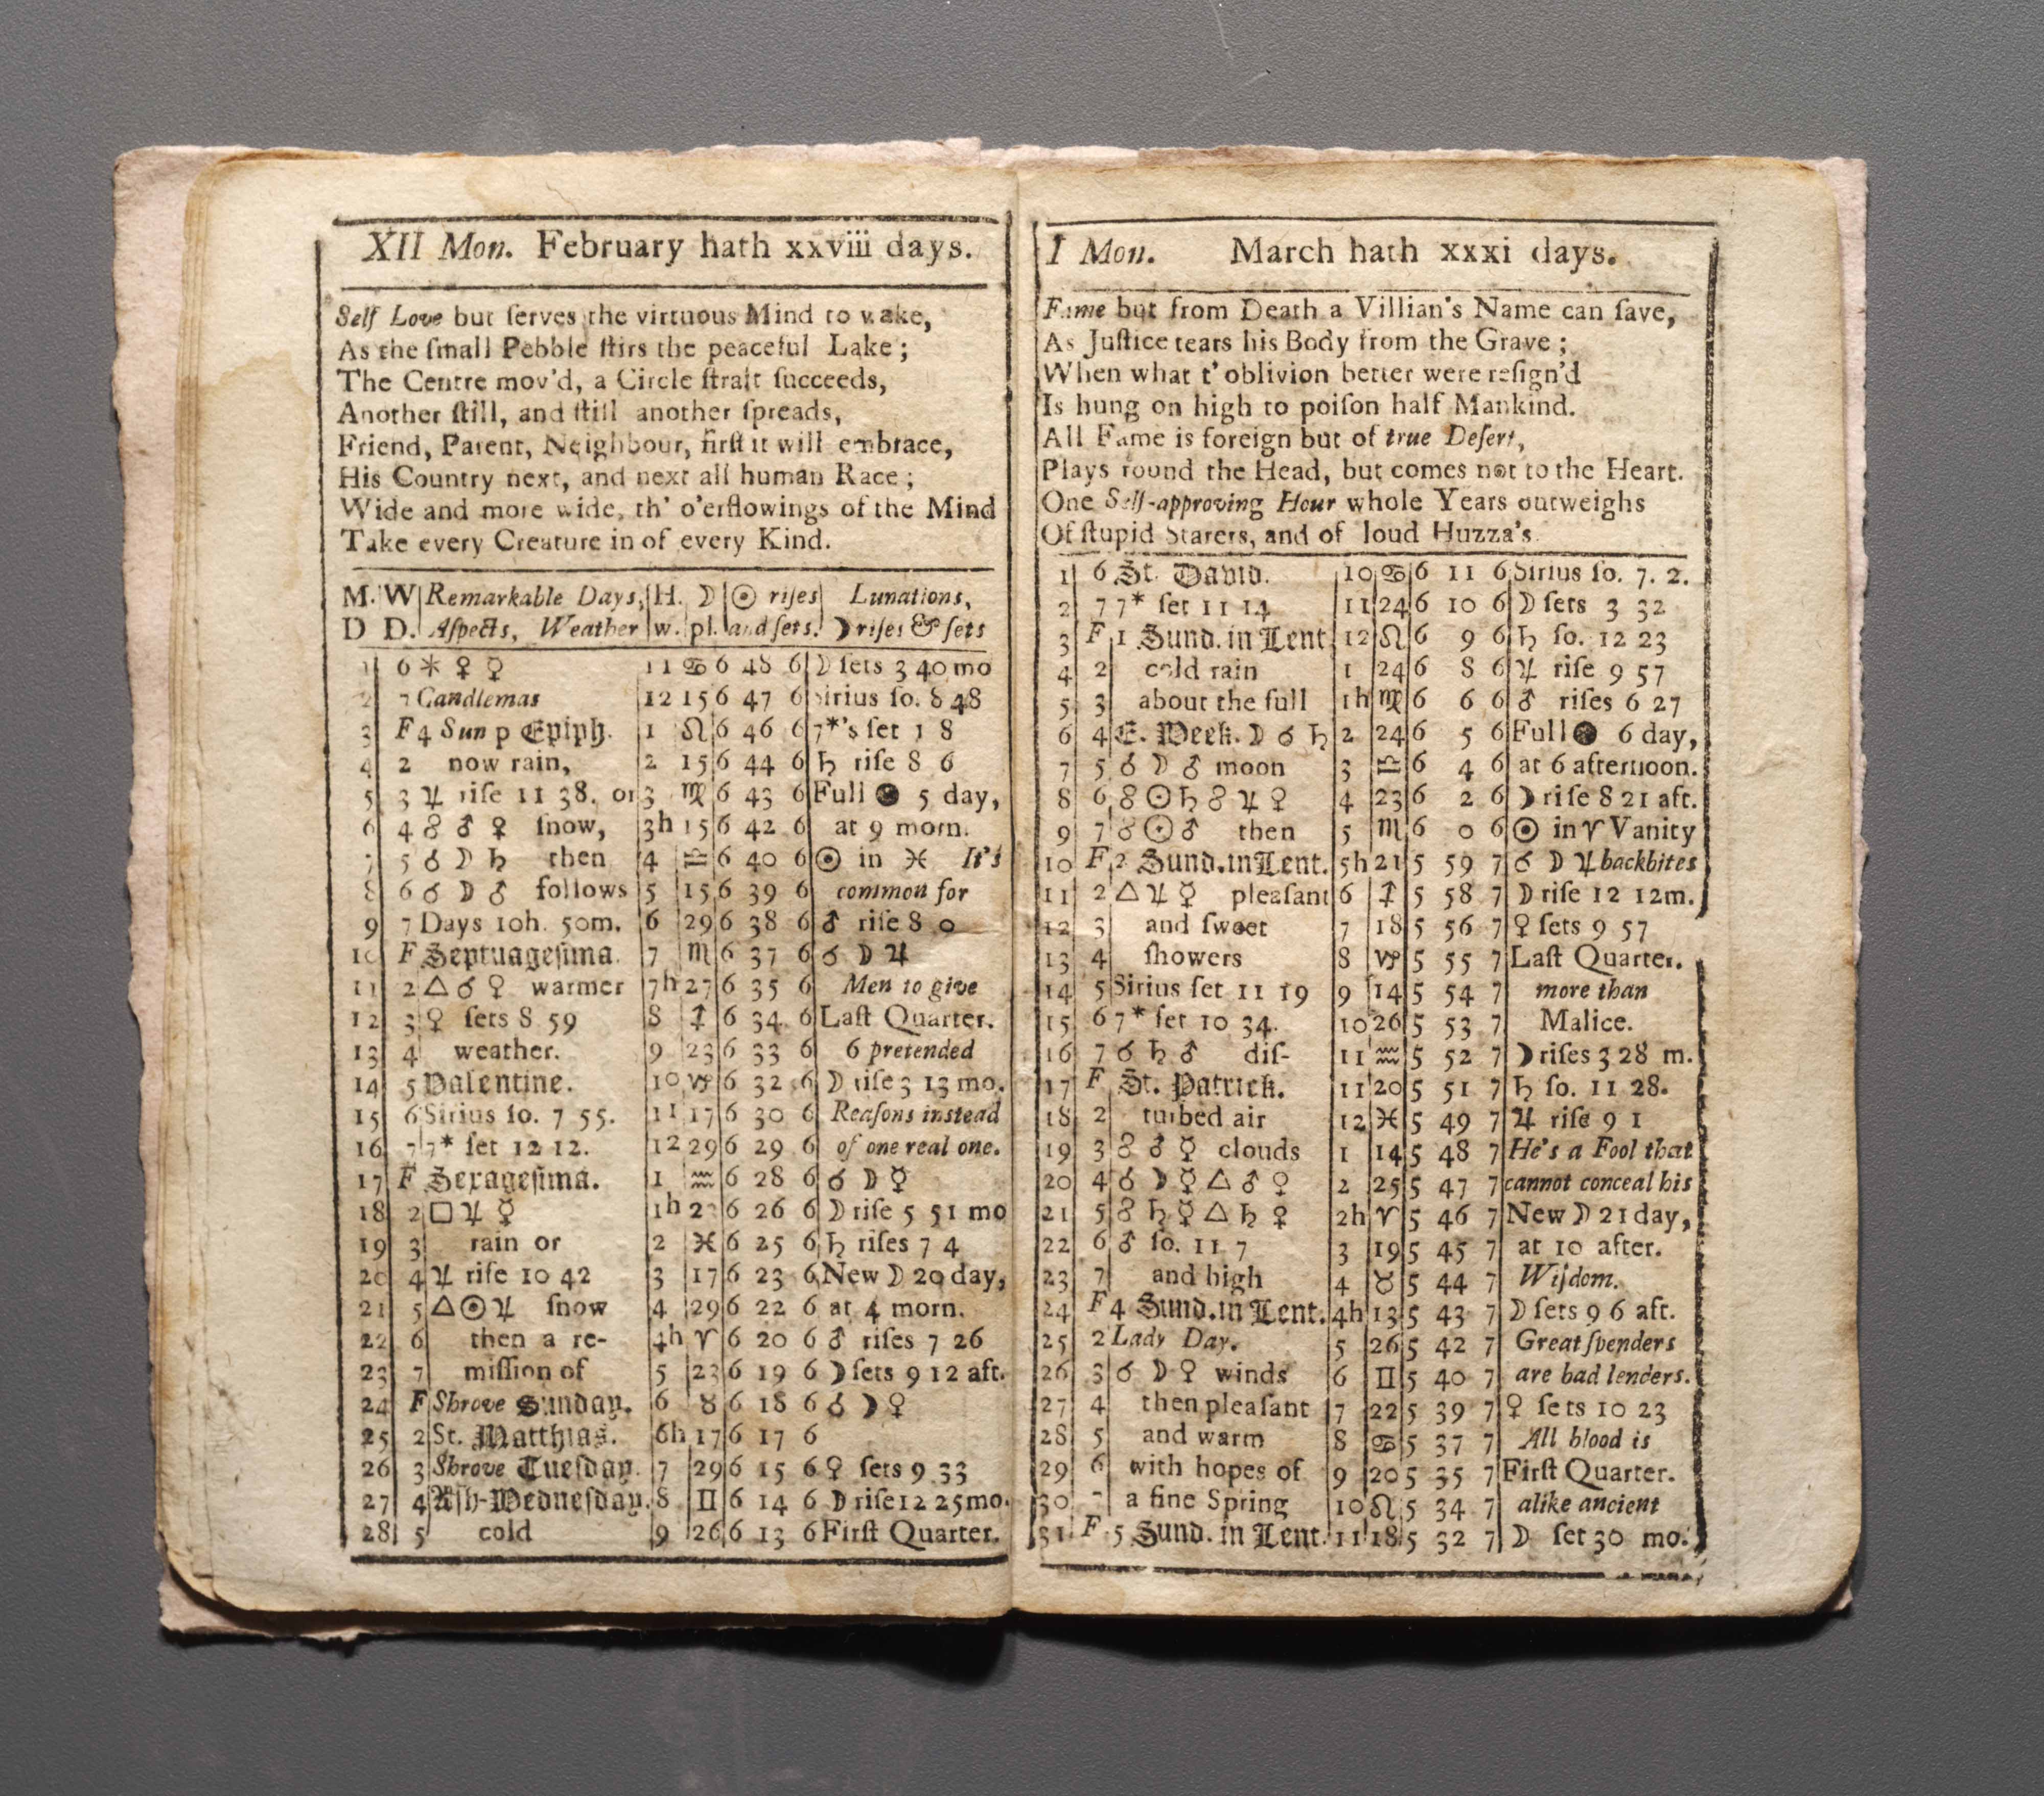 XII Mon. February hath xxviii days.
Self Love but ſerves the virtuous Mind to wake,
As the ſmall Pebble ſtirs the peaceful Lake ;
The Centre mov'd, a Circle ſtrait ſucceeds,
Another ſtill, and ſtill another ſpreads,
Friend, Parent, Neighbour, firſt it will embrace,
His Country next, and next all human Race ;
Wide and more wide, th' o'erflowings of the Mind
Take every Creature in of every Kind.
M. W Remarkable Days, H. ☽ ☉ riſes Lunations,
D D. Aſpects, Weather w. pl. and ſets. ☽ riſes & ſets
1 6 ⚹ ♀ ☿ 11 ♋ 6 48 6 ☽ ſets 3 40 mo
2 7 Candlemas 12 15 6 47 6 Sirius ſo. 8 48
3 F 4 Sun p Epiph. 1 ♌ 6 46 6 7*'s ſet 1 8
4 2 now rain, 2 15 6 44 6 ♄ riſe 8 6
5 3 ♃ riſe 11 38. or 3 ♍ 6 43 6 Full ● 5 day,
6 4 ☍ ♂ ♀ ſnow, 3h 15 6 42 6 at 9 morn.
7 5 ☌ ☽ ♄ then 4 ♎ 6 40 6 ☉ in ♓ It's
8 6 ☌ ☽ ♂ follows 5 15 6 39 6 common for
9 7 Days 10h. 50m. 6 29 6 38 6 ♂ riſe 8 0
10 F Septuageſima. 7 ♏ 6 37 6 ☌ ☽ ♃
11 2 △ ♂ ♀ warmer 7h 27 6 35 6 Men to give
12 3 ♀ ſets 8 59 8 ♐ 6 34 6 Laſt Quarter.
13 4 weather. 9 23 6 33 6 6 pretended
14 5 Valentine. 10 ♑ 6 32 6 ☽ riſe 3 13 mo.
15 6 Sirius ſo. 7 55. 11 17 6 30 6 Reaſons instead
16 7 7* ſet 12 12. 12 29 6 29 6 of one real one.
17 F Sexageſima. 1 ♒ 6 28 6 ☌ ☽ ☿
18 2 □ ♃ ☿ 1h 23 6 26 6 ☽ riſe 5 51 mo
19 3 rain or 2 ♓ 6 25 6 ♄ riſes 7 4
20 4 ♃ riſe 10 42 3 17 6 23 6 New ☽ 20 day,
21 5 △ ☉ ♃ ſnow 4 29 6 22 6 at 4 morn.
22 6 then a re- 4h ♈ 6 20 6 ♂ riſes 7 26
23 7 miſſion of 5 23 6 19 6 ☽ ſets 9 12 aft.
24 F Shrove Sunday. 6 ♉ 6 18 6 ☌ ☽ ♀
25 2 St. Matthias. 6h 17 6 17 6
26 3 Shrove Tueſday. 7 29 6 15 6 ♀ ſets 9 33
27 4 Aſh-Wedneſday. 8 ♊ 6 14 6 ☽ riſe 12 25 mo.
28 5 cold 9 26 6 13 6 Firſt Quarter.
I Mon. March hath xxxi days.
Fame but from Death a Villian's Name can ſave,
As Juſtice tears his Body from the Grave ;
When what t' oblivion better were reſign'd
Is hung on high to poiſon half Mankind.
All Fame is foreign but of true Deſert,
Plays round the Head, but comes not to the Heart.
One Self-approving Hour whole Years outweighs
Of ſtupid Starers, and of loud Huzza's.
1 6 St. David. 10 ♋ 6 11 6 Sirius ſo. 7. 2.
2 7 7* ſet 11 14 11 24 6 10 6 ☽ ſets 3 32
3 F 1 Sund. in Lent 12 ♌ 6 9 6 ♄ ſo. 12 23
4 2 cold rain 1 24 6 8 6 ♃ riſe 9 57
5 3 about the full 1h ♍ 6 6 6 ♂ riſes 6 27
6 4 E. Week. ☽ ☌ ♄ 2 24 6 5 6 Full ● 6 day,
7 5 ☌ ☽ ♂ moon 3 ♎ 6 4 6 at 6 afternoon.
8 6 ☍ ☉ ♄ ☍ ♃ ♀ 4 23 6 2 6 ☽ riſe 8 21 aft.
9 7 ☍ ☉ ♂ then 5 ♏ 6 0 6 ☉ in ♈ Vanity
10 F 2 Sund. in Lent. 5h 21 5 59 7 ☌ ☽ ♃ backbites
11 2 △ ♃ ☿ pleaſant 6 ♐ 5 58 7 ☽ riſe 12 12m.
12 3 and ſweet 7 18 5 56 7 ♀ ſets 9 57
13 4 ſhowers 8 ♑ 5 55 7 Laſt Quarter.
14 5 Sirius ſet 11 19 9 14 5 54 7 more than
15 6 7* ſet 10 34. 10 26 5 53 7 Malice.
16 7 ☌ ♄ ♂ diſ- 11 ♒ 5 52 7 ☽ riſes 3 28 m.
17 F St. Patrick. 11 20 5 51 7 ♄ ſo. 11 28.
18 2 turbed air 12 ♓ 5 49 7 ♃ riſe 9 1
19 3 ☍ ♂ ☿ clouds 1 14 5 48 7 He's a Fool that
20 4 ☌ ☽ ☿ △ ♂ ♀ 2 25 5 47 7 cannot conceal his
21 5 ☍ ♄ ☿ △ ♄ ♀ 2h ♈ 5 46 7 New ☽ 21 day,
22 6 ♂ ſo. 11 7 3 19 5 45 7 at 10 after.
23 7 and high 4 ♉ 5 44 7 Wiſdom.
24 F 4 Sund. in Lent. 4h 13 5 43 7 ☽ ſets 9 6 aft.
25 2 Lady Day. 5 26 5 42 7 Great ſpenders
26 3 ☌ ☽ ♀ winds 6 ♊ 5 40 7 are bad lenders.
27 4 then pleaſant 7 22 5 39 7 ♀ ſets 10 23
28 5 and warm 8 ♋ 5 37 7 All blood is
29 6 with hopes of 9 20 5 35 7 Firſt Quarter.
30 7 a fine Spring 10 ♌ 5 34 7 alike ancient
31 F 5 Sund. in Lent. 11 18 5 32 7 ☽ ſet 30 mo.